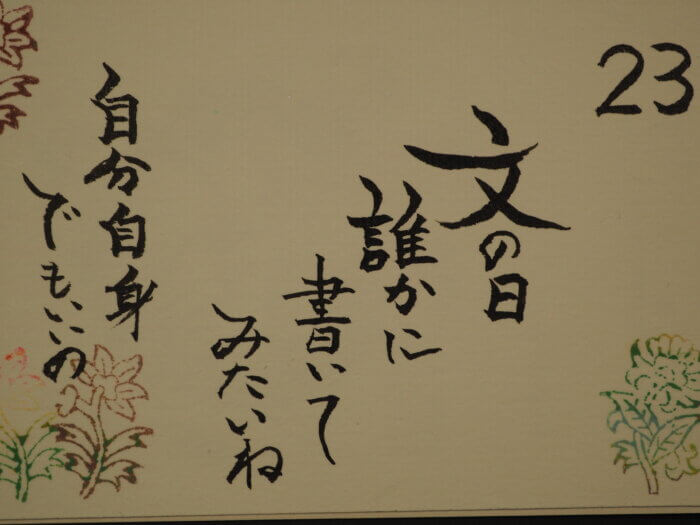 23
文の日
誰かに
書いて
みたいね
自分自身
でもいいの